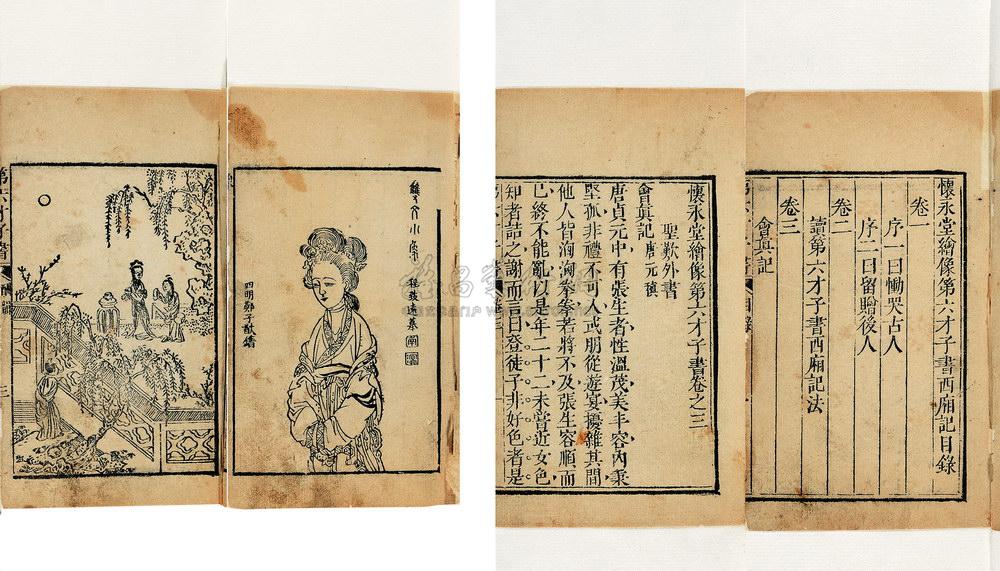 懷永堂繪像第六才子書西廂記目錄
卷一
序一曰慟哭古人
序二曰留贈後人
卷二
讀第六才子書西廂記法
卷三
會真記
懷永堂繪像第六才子書卷之三
聖歎外書
會真記 唐元稹
唐貞元中有張生者性溫茂美丰容內秉
堅孤非禮不可入或朋從遊宴擾雜其間
他人皆洶洶拳拳若將不及張生容順而
已終不能亂以是年二十二未嘗近女色
知者詰之謝而言曰登徒子非好色者是
小像
程致遠摹
四明鄭子猷鐫
第六才子書